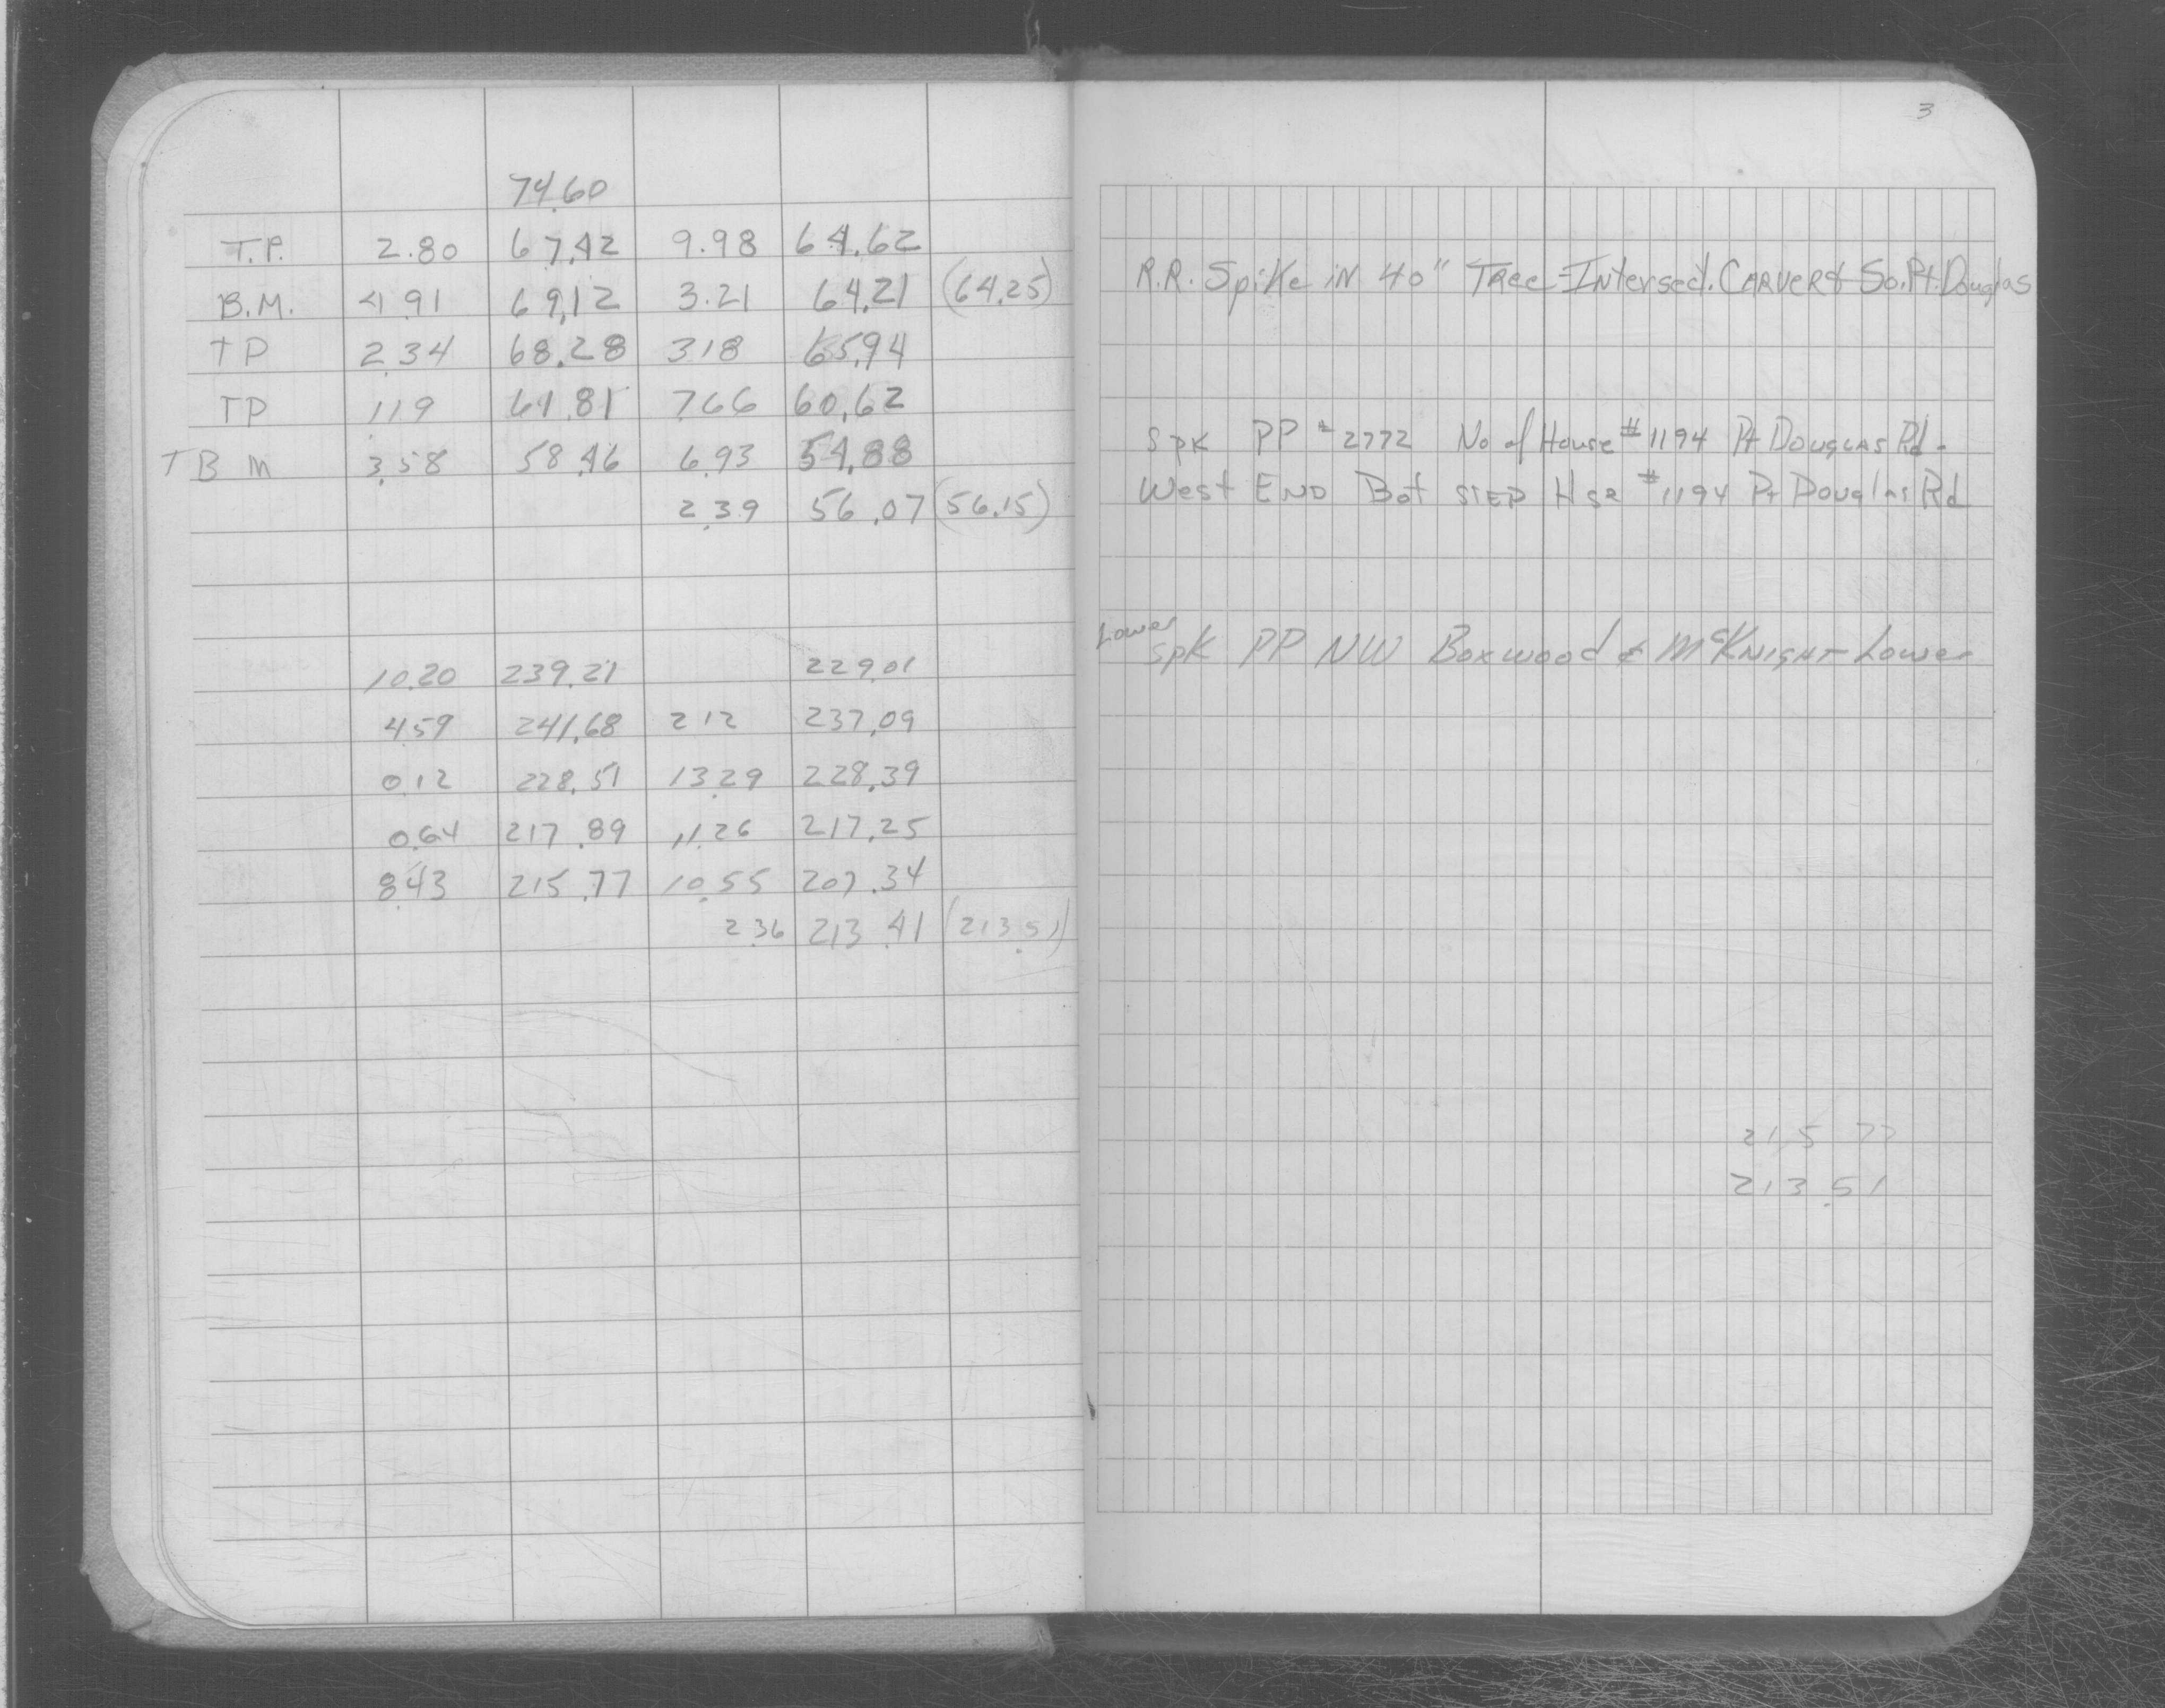 74.60
T.P. 2.80 67.42 9.98 64.62
B.M. 4.91 69.12 3.21 64.21 (64.25)
TP 2.34 68.28 3.18 65.94
TP 1.19 61.81 7.66 60.62
TBM 3.58 58.46 6.93 54.88
2.39 56.07 (56.15)
10.20 239.21 229.01
4.59 241.68 2.12 237.09
0.12 228.51 13.29 228.39
0.64 217.89 11.26 217.25
8.43 215.77 10.55 207.34
2.36 213.41 (213.51)
3
R.R. Spike in 40" Tree-Intersect. Carver & So. Pt. Douglas
Spk PP #2772 No of House #1194 Pt Douglas Rd.
West End Bot Step Hse #1194 Pt Douglas Rd
Lower
Spk PP NW Boxwood & McKnight-Lower
215.77
213.51